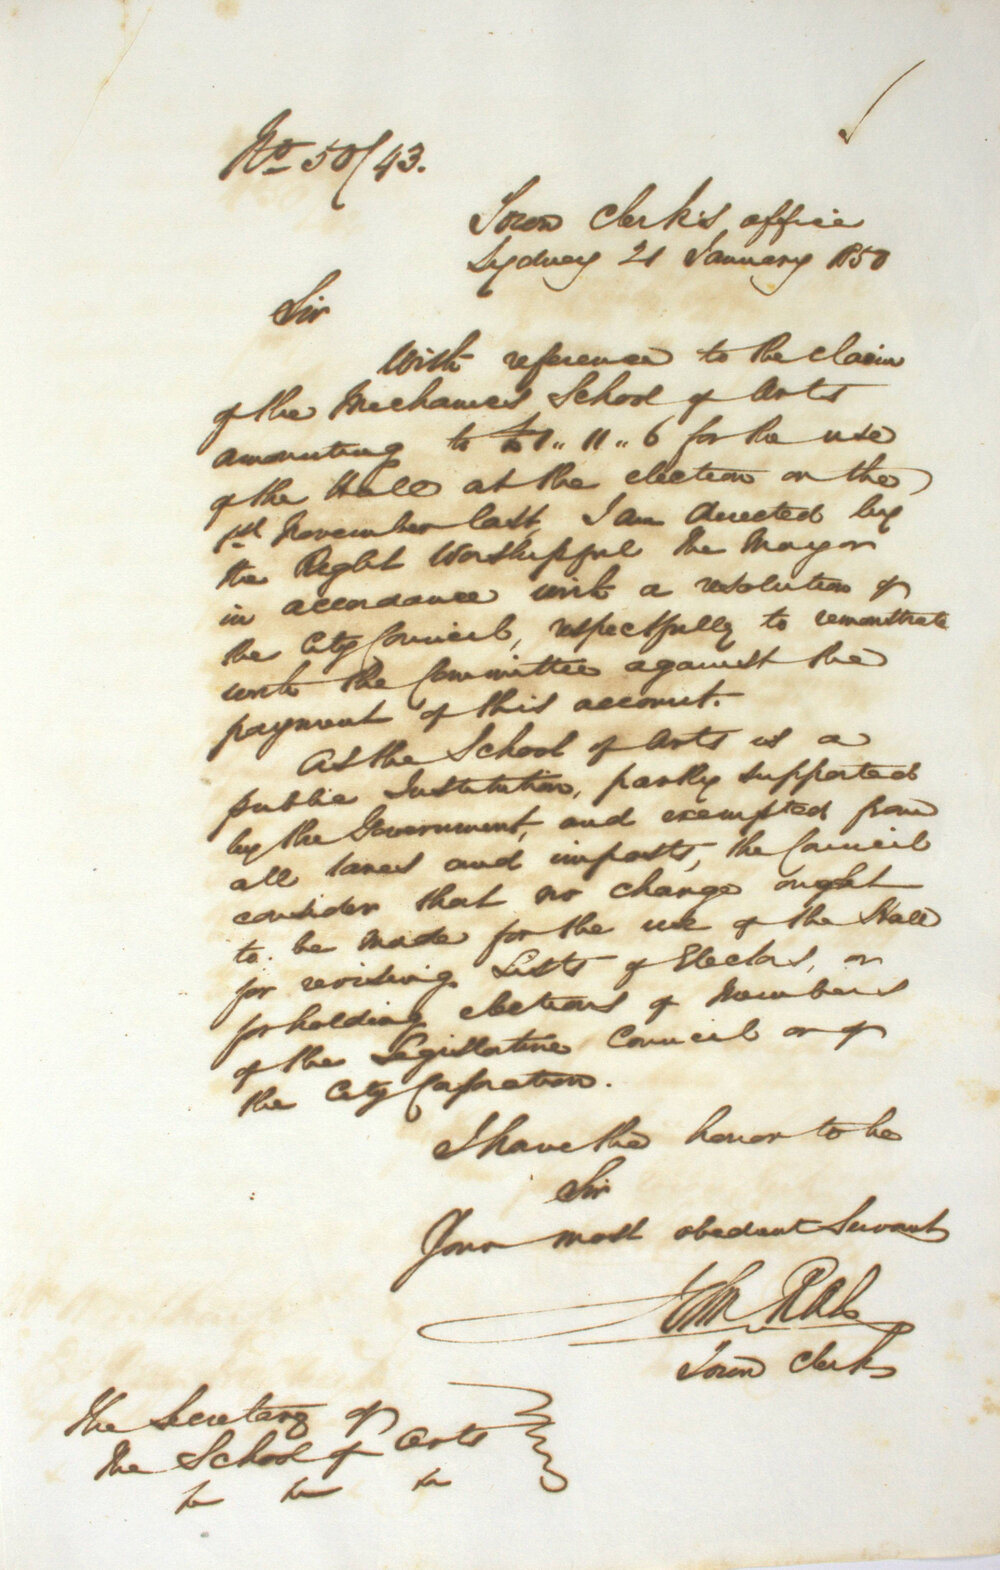 No 50/43.
Town Clerk's office
Sydney 21 January 1850
Sir
With reference to the claim
of the Mechanics School of Arts
amounting to £1.. 11.. 6 for the use
of the Hall at the election on the
1st November last, I am directed by
the Right Worshipful the Mayor
in accordance with a resolution of
the City Council, respectfully to remonstrate
with the Committee against the
payment of this account.
As the School of Arts is a
public Institution, partly supported
by the Government, and exempted from
all taxes and imposts, the Council
consider that no charge ought
to be made for the use of the Hall
for revising Lists of Electors, or
for holding elections of Members
of the Legislative Council or of
the City Corporation.
I have the honor to be
Sir
Your most obedient Servant
John Rae
Town Clerk
The Secretary of
The School of Arts